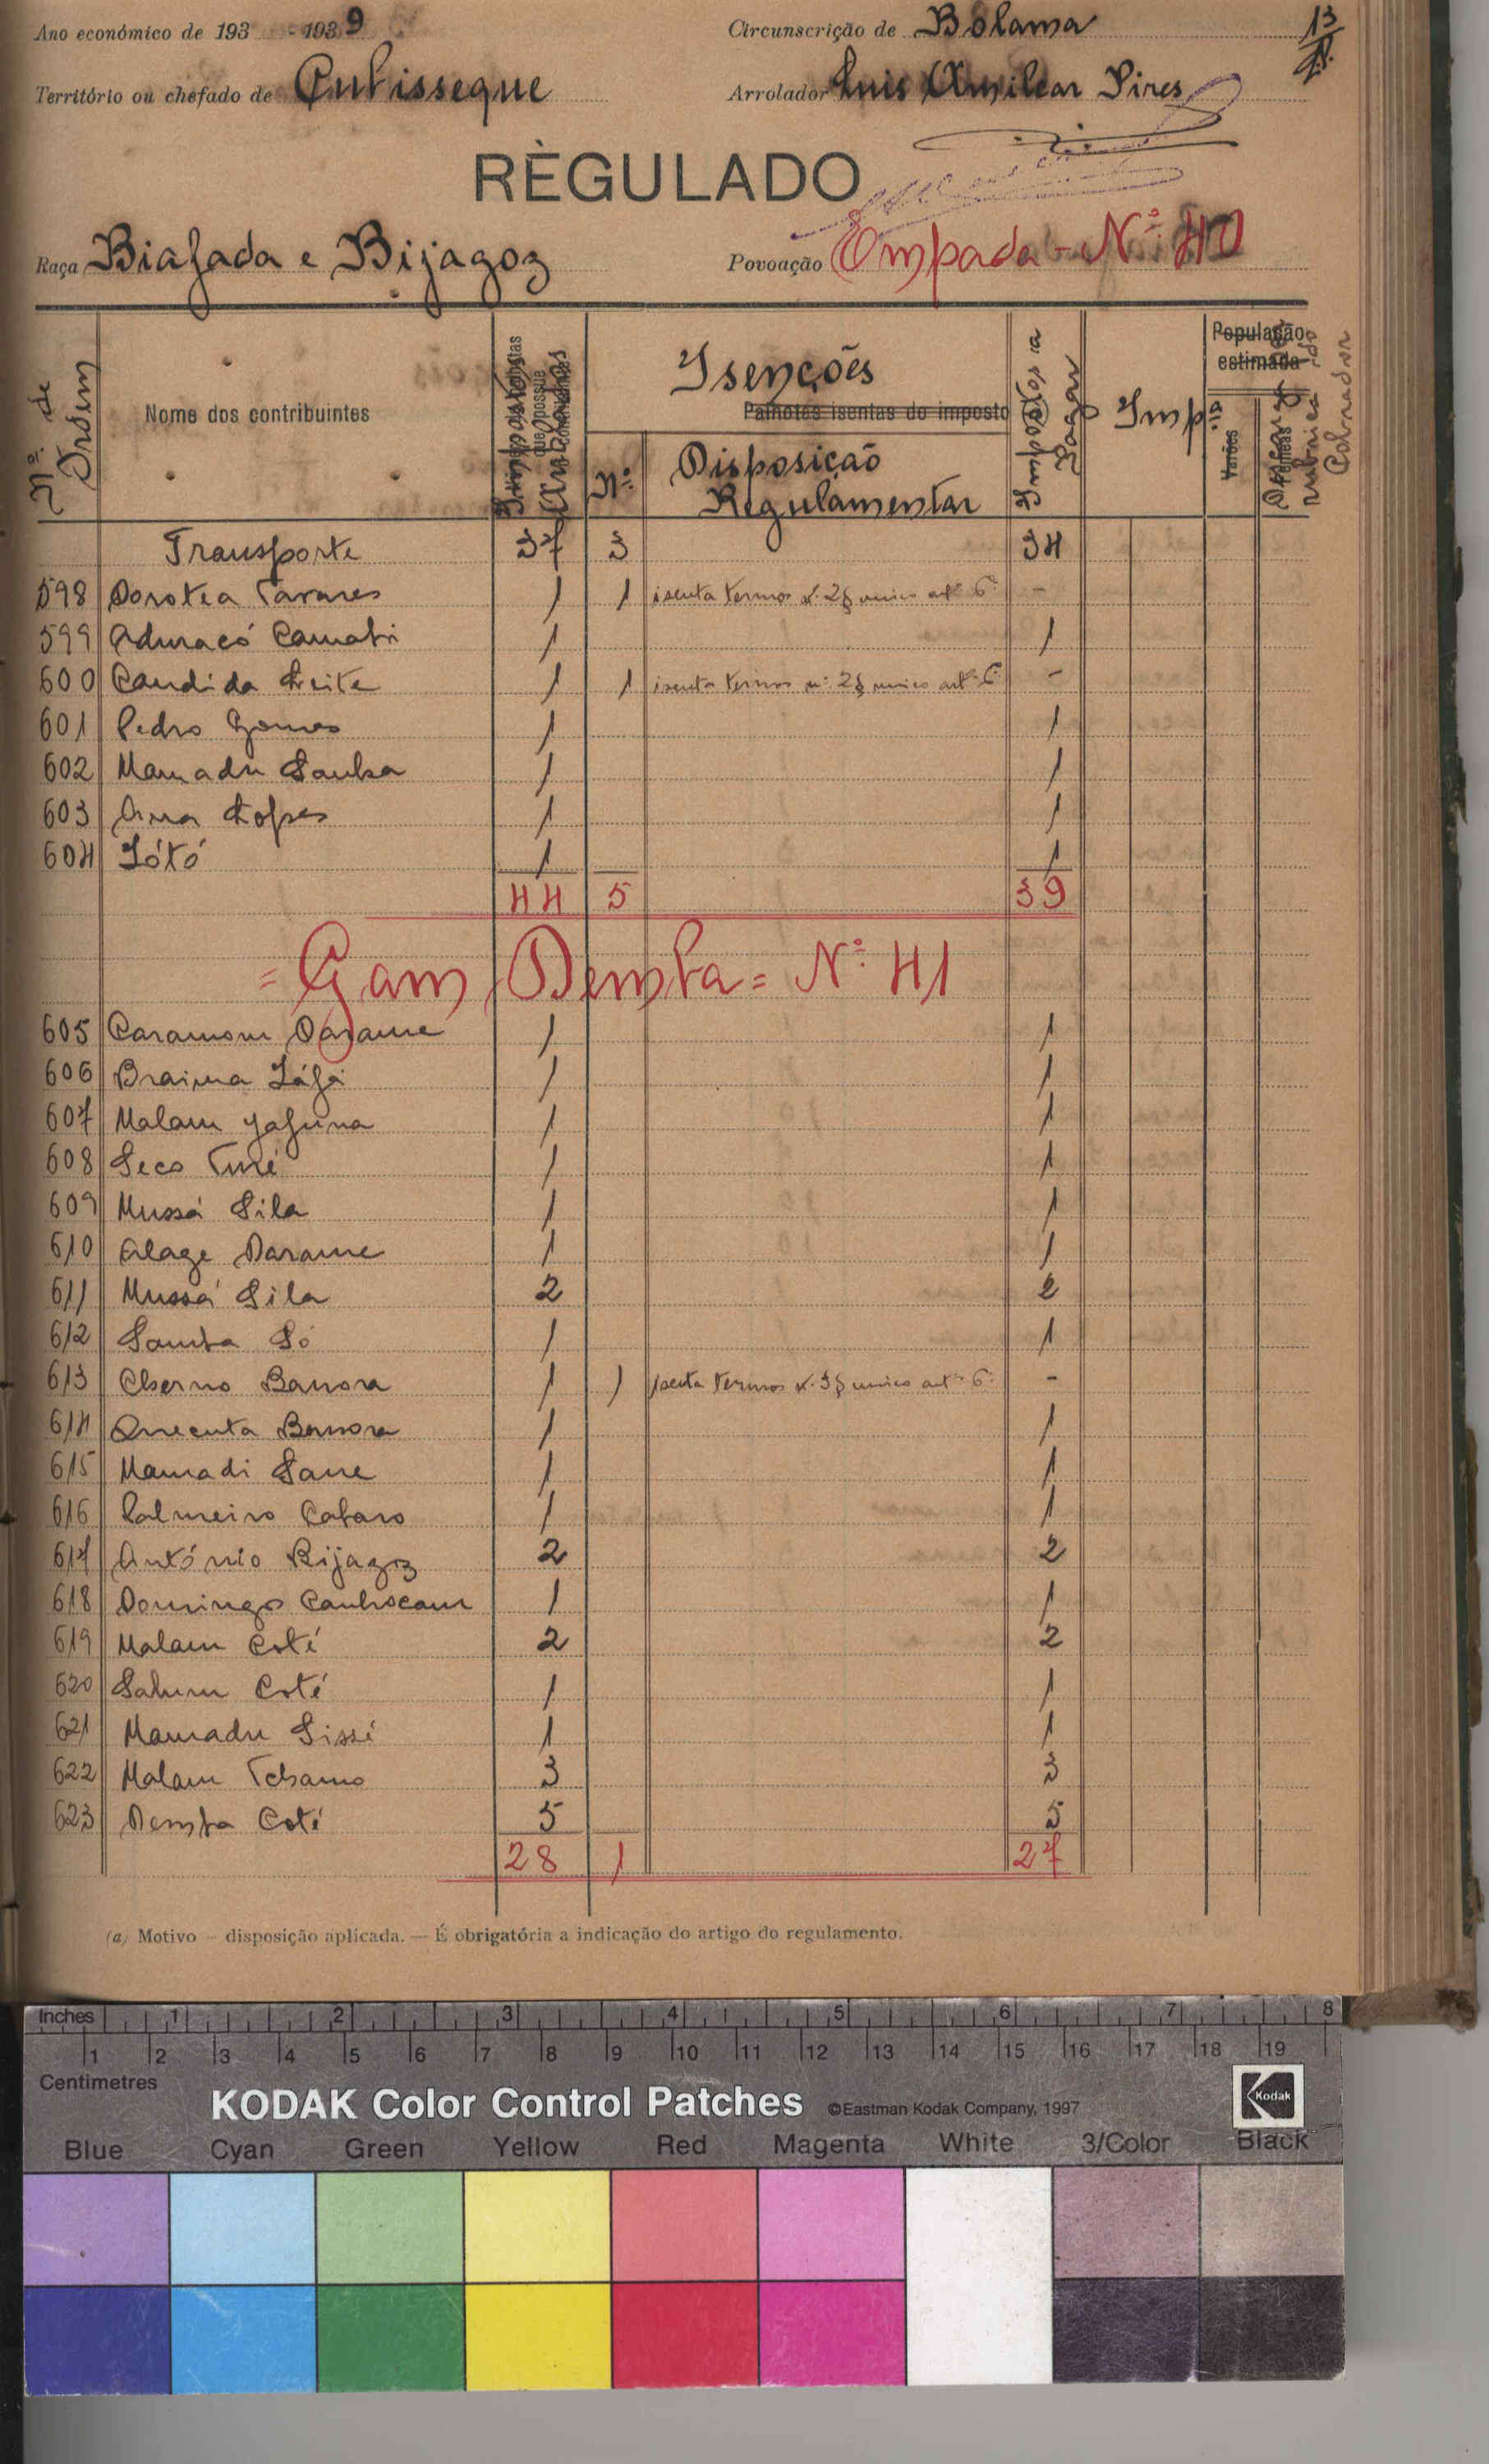 Ano económico de 193 -1939
Circunscrição de Bolama
13
Território ou chefado de Cubisseque
Arrolador Luis Amilcar Pires
RÈGULADO
Raça Biafada e Bijagoz
Povoação Empada - Nº 40
Nº de Ordem
Nome dos contribuintes
Impostos
Isenções
Palhotas isentas do imposto
Nº
Disposição
Regulamentar
Impostos a Pagar
Impª
População
estimada
Varões
Fêmeas
rubrica do Cobrador
Transporte 37 3 34
598 Dorotea Tavares 1 1 isenta termos nº 2 § unico artº 6º -
599 1 1
600 Candida Leite 1 1 isenta termos nº 2 § unico artº 6º -
601 Pedro Gomes 1 1
602 Mamadu Sanha 1 1
603 Ana Lopes 1 1
604 Iótó 1 1
44 5 39
= Gam Demba = Nº 41
605 Darame 1 1
606 Braima 1 1
607 Malam Jassuna 1 1
608 Seco Turé 1 1
609 Mussá Sila 1 1
610 Alage Darame 1 1
611 Mussá Sila 2 2
612 Samba Só 1 1
613 Cherno Banora 1 1 isenta termos nº 3 § unico artº 6º -
614 Quecuta Banora 1 1
615 Mamadi Sane 1 1
616 Palmeiro Cabaro 1 1
617 António Bijagoz 2 2
618 Domingos 1 1
619 Malam Coté 2 2
620 Coté 1 1
621 Mamadu Sissé 1 1
622 Malam Tchamo 3 3
623 Demba Coté 5 5
28 1 27
(a) Motivo - disposição aplicada. — É obrigatória a indicação do artigo do regulamento.
Inches 1 2 3 4 5 6 7 8
1 2 3 4 5 6 7 8 9 10 11 12 13 14 15 16 17 18 19
Centimetres
KODAK Color Control Patches ©Eastman Kodak Company, 1997
Kodak
Blue Cyan Green Yellow Red Magenta White 3/Color Black